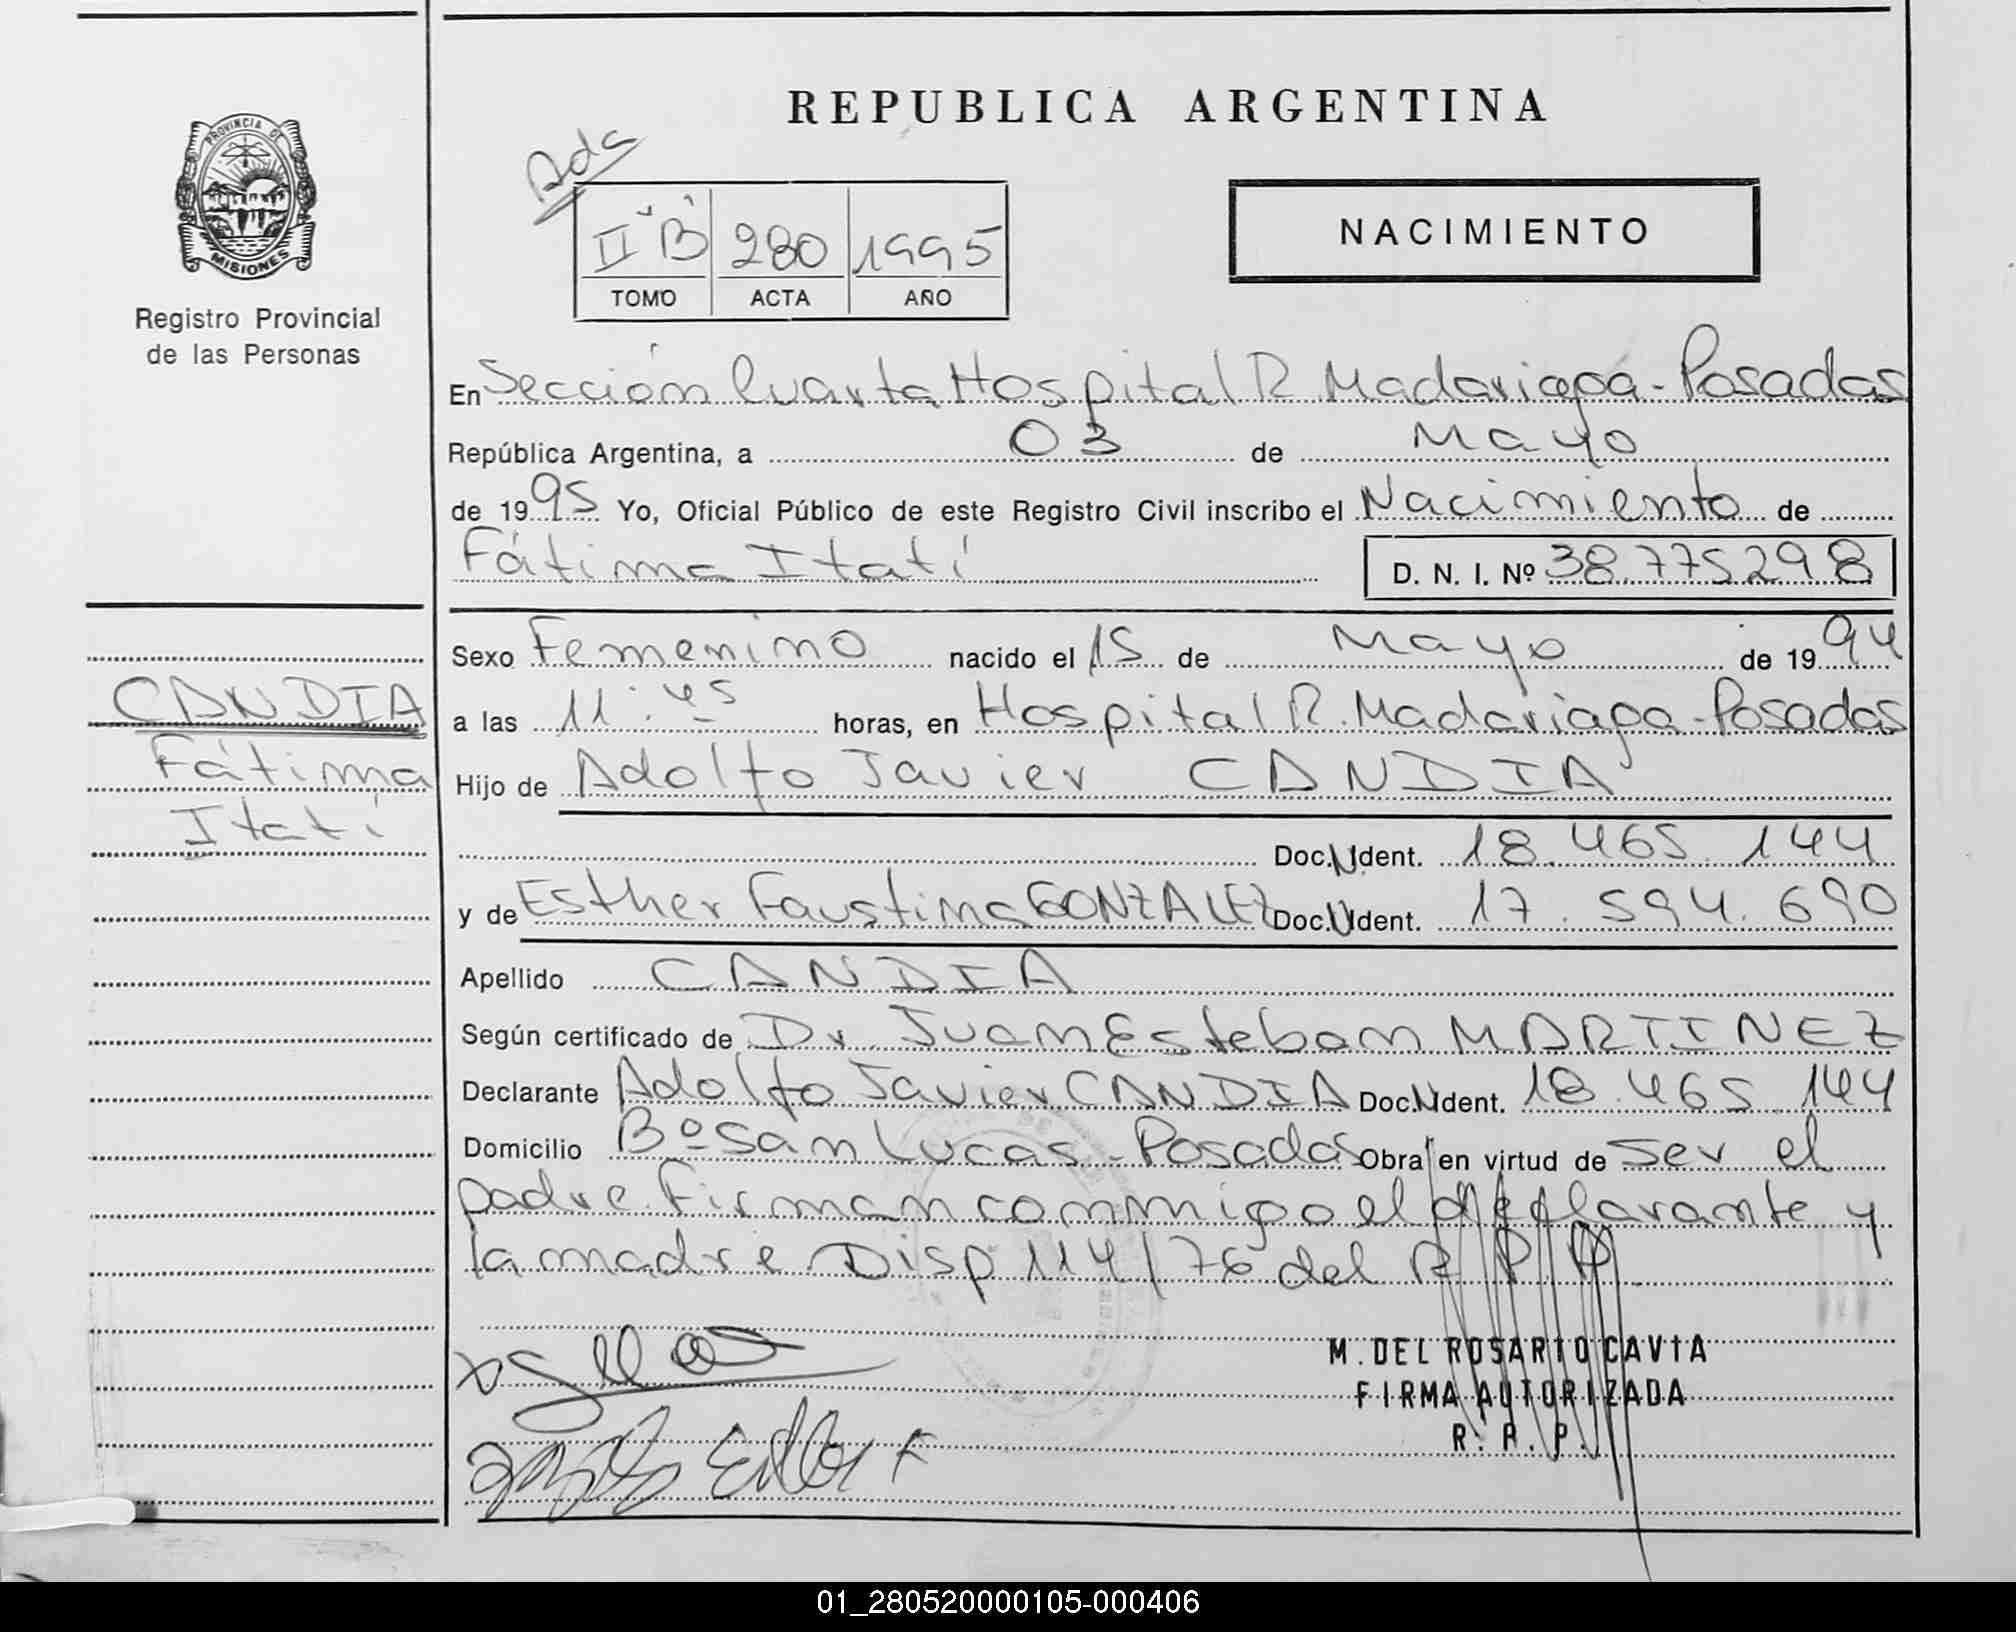 REPUBLICA ARGENTINA
PROVINCIA DE
MISIONES
Registro Provincial
de las Personas
Ada
II "B" 280 1995
TOMO ACTA AÑO
NACIMIENTO
En Sección Cuarta Hospital R. Madariaga - Posadas
República Argentina, a 03 de Mayo
de 1995 Yo, Oficial Público de este Registro Civil inscribo el Nacimiento de
Fátima Itatí D. N. I. Nº 38775298
Sexo Femenino nacido el 15 de Mayo de 1994
CANDIA
Fátima
Itatí
a las 11:45 horas, en Hospital R. Madariaga - Posadas
Hijo de Adolfo Javier CANDIA
Doc.N.Ident. 18.465.144
y de Esther Faustina GONZALEZ Doc.N.Ident. 17.594.690
Apellido CANDIA
Según certificado de Dr. Juan Esteban MARTINEZ
Declarante Adolfo Javier CANDIA Doc.N.Ident. 18.465.144
Domicilio Bº San Lucas - Posadas Obra en virtud de ser el
padre. Firman conmigo el declarante y
la madre Disp 114/76 del R.P.P.
M. DEL ROSARIO CAVIA
FIRMA AUTORIZADA
R. P. P.
01_280520000105-000406